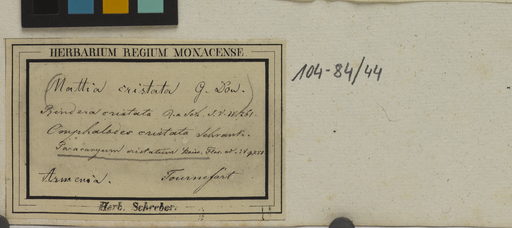 HERBARIUM REGIUM MONACENSE
(Mattia cristata G. Don.)
Rindera cristata
Omphalodes cristata Schrank.
Paracaryum cristatum Boiss. Flor.
Armenia. Tournefort
Herb. Schreber.
104-84/44